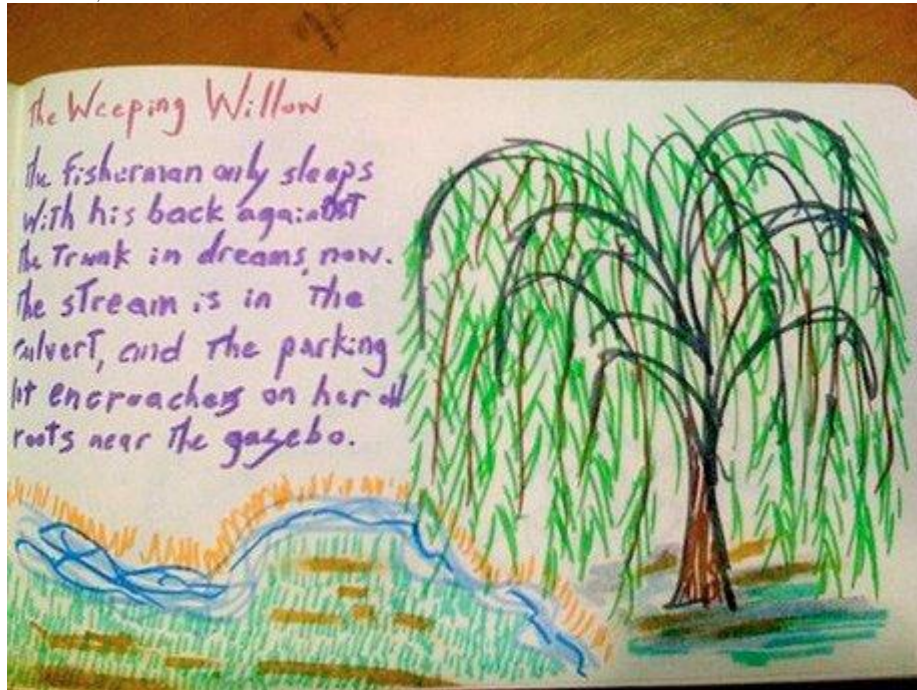 the Weeping Willow
the fisherman only sleeps
with his back against
the Trunk in dreams, now.
the stream is in the
culvert, and the parking
lot encroaches on her old
roots near the gazebo.